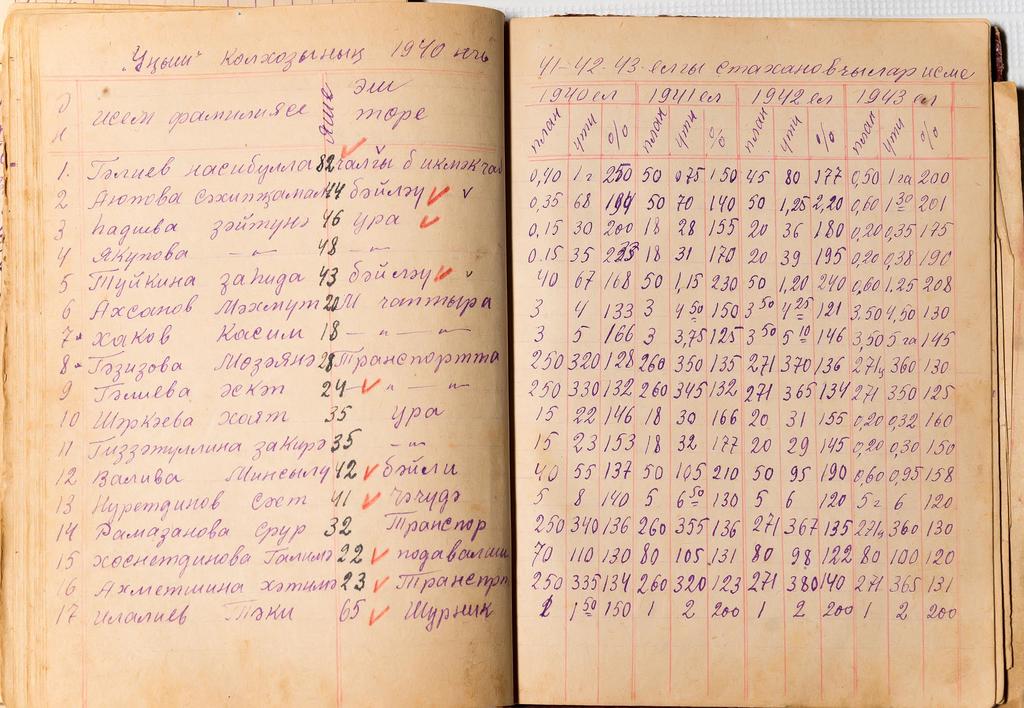 "Уңыш" колхозының 1940 нчы 41-42-43-елгы стахановчылар исеме
№ исем фамилиясе яше эш төре 1940 ел 1941 ел 1942 ел 1943 ел
план үти % план үти % план үти % план үти %
1. Гәлиев Насибулла 82 чалгы 0,40 1 г 250 50 0,75 150 45 80 177 0,50 1 га 200
2 Аюпова 44 бәйләү 0,35 68 194 50 70 140 50 1,25 2,20 0,60 1 30 201
3 Һадиева Зәйтүнә 46 ура 0,15 30 200 18 28 155 20 36 180 0,20 0,35 175
4 Якупова -"- 48 -"- 0.15 35 18 31 170 20 39 195 0,20 0,38 190
5 Туйкина Заһида 43 бәйләү 40 67 168 50 1,15 230 50 1,20 240 0,60 1.25 208
6 Ахсанов Мәхмүт 20 М чаптыра 3 4 133 3 4 50 150 3 50 4 25 121 3.50 4,50 130
7 Хаков Касим 18 -"- -"- 3 5 166 3 3,75 125 3 50 5 10 146 3,50 5 га 145
8 Гәзизова 28 Транспортта 250 320 128 260 350 135 271 370 136 271 360 130
9 Гәлиева Әскәп 24 -"- -"- 250 330 132 260 345 132 271 365 134 271 350 125
10 Шәркәева Хаят 35 ура 15 22 146 18 30 166 20 31 155 0,20 0,32 160
11 Гиззәтуллина Закирә 35 -"- 15 23 153 18 32 177 20 29 145 0,20 0,30 150
12 Валива Минсылу 42 бәйли 40 55 137 50 105 210 50 95 190 0,60 0,95 158
13 Нуретдинов Сәет 41 чәчүдә 5 8 140 5 6 50 130 5 6 120 5 г 6 120
14 Рамазанова Срур 32 Транспор 250 340 136 260 355 136 271 367 135 271 360 130
15 Хөснетдинова Галимә 22 70 110 130 80 105 131 80 98 122 80 100 120
16 Ахметшина Хәтимә 23 Транспорт 250 335 134 260 320 123 271 380 140 271 365 131
17 Илалиев Тәки 65 Шурник 1 1 50 150 1 2 200 1 2 200 1 2 200